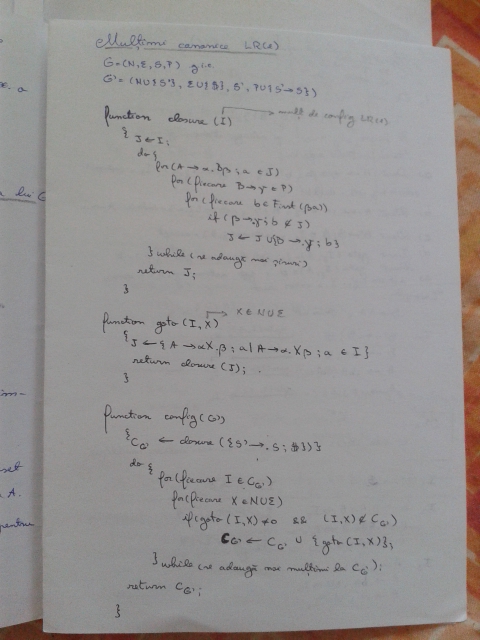 Mulțimi canonice LR(1)
G=(N,Σ,S,P) g.i.c.
G'=(NU{S'}, ΣU{$}, S', PU{S'→S})
function closure (I) → mulț de config LR(1)
{ J←I;
do {
for(A→α.Bβ; a ∈ J)
for(fiecare B→γ ∈ P)
for(fiecare b∈First(βa))
if (B→.γ; b ∉ J)
J ← J U{B→.γ; b}
} while (se adaugă noi
return J;
}
function goto (I,X) → X∈NUΣ
{J←{A→αX.β; a| A→α.Xβ; a ∈ I}
return closure (J);
}
function config(G');
{C_G' ← closure ({S'→.S; $})}
do {
for(fiecare I∈C_G')
for(fiecare X∈NUΣ)
if(goto (I,X)≠∅ && (I,X)∉C_G')
C_G' ← C_G' U {goto(I,X)};
} while (se adaugă noi mulțimi la C_G');
return C_G';
}
a
lui G
set
A.
pentru